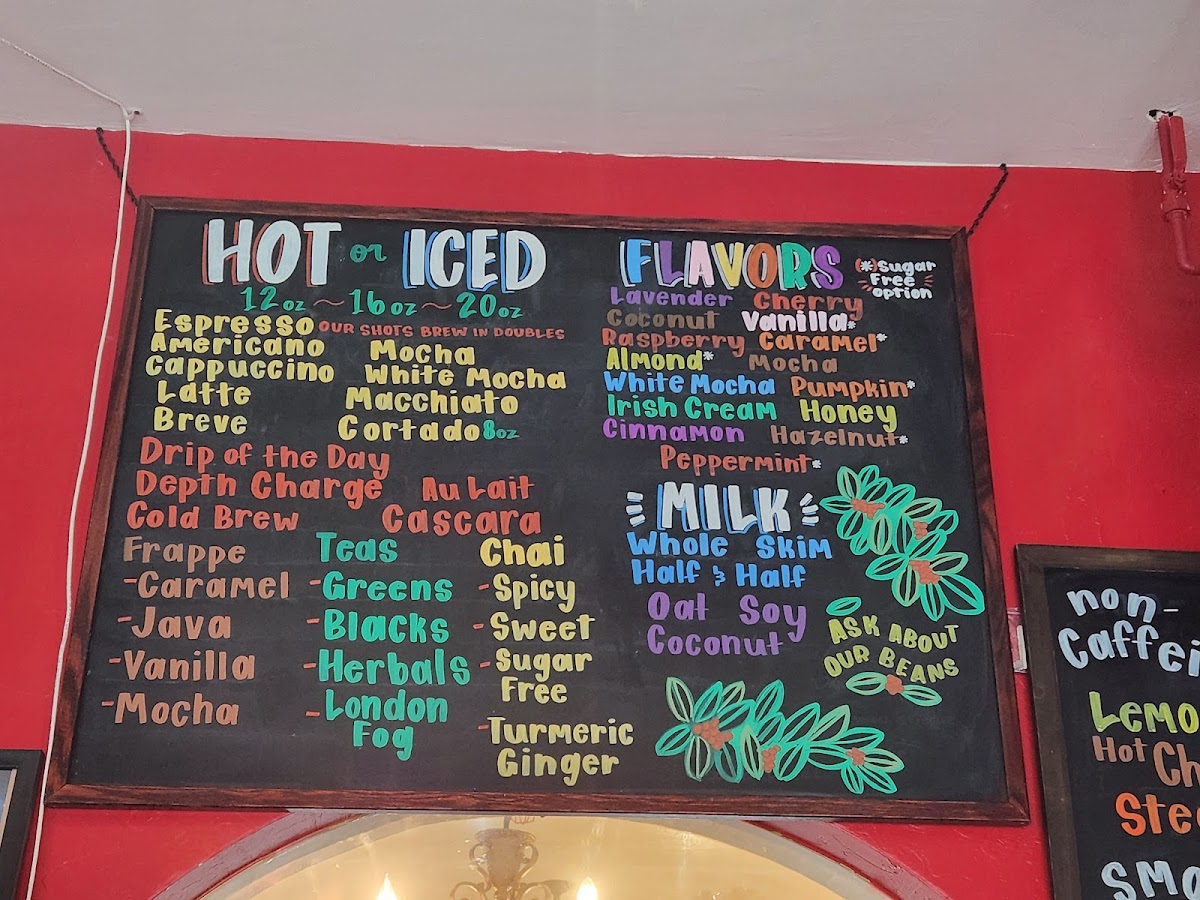 HOT or ICED
12oz ~ 16oz ~ 20oz
Espresso OUR SHOTS BREW IN DOUBLES
Americano Mocha
Cappuccino White Mocha
Latte Macchiato
Breve Cortado 8oz
Drip of the Day
Depth Charge Au Lait
Cold Brew Cascara
Frappe
-Caramel
-Java
-Vanilla
-Mocha
Teas
-Greens
-Blacks
-Herbals
-London
Fog
Chai
-Spicy
-Sweet
-Sugar
Free
-Turmeric
Ginger
FLAVORS
(*)Sugar
Free
option
Lavender Cherry
Coconut Vanilla*
Raspberry Caramel*
Almond* Mocha
White Mocha Pumpkin*
Irish Cream Honey
Cinnamon Hazelnut*
Peppermint*
MILK
Whole Skim
Half & Half
Oat Soy
Coconut
ASK ABOUT
OUR BEANS
non-
Hot